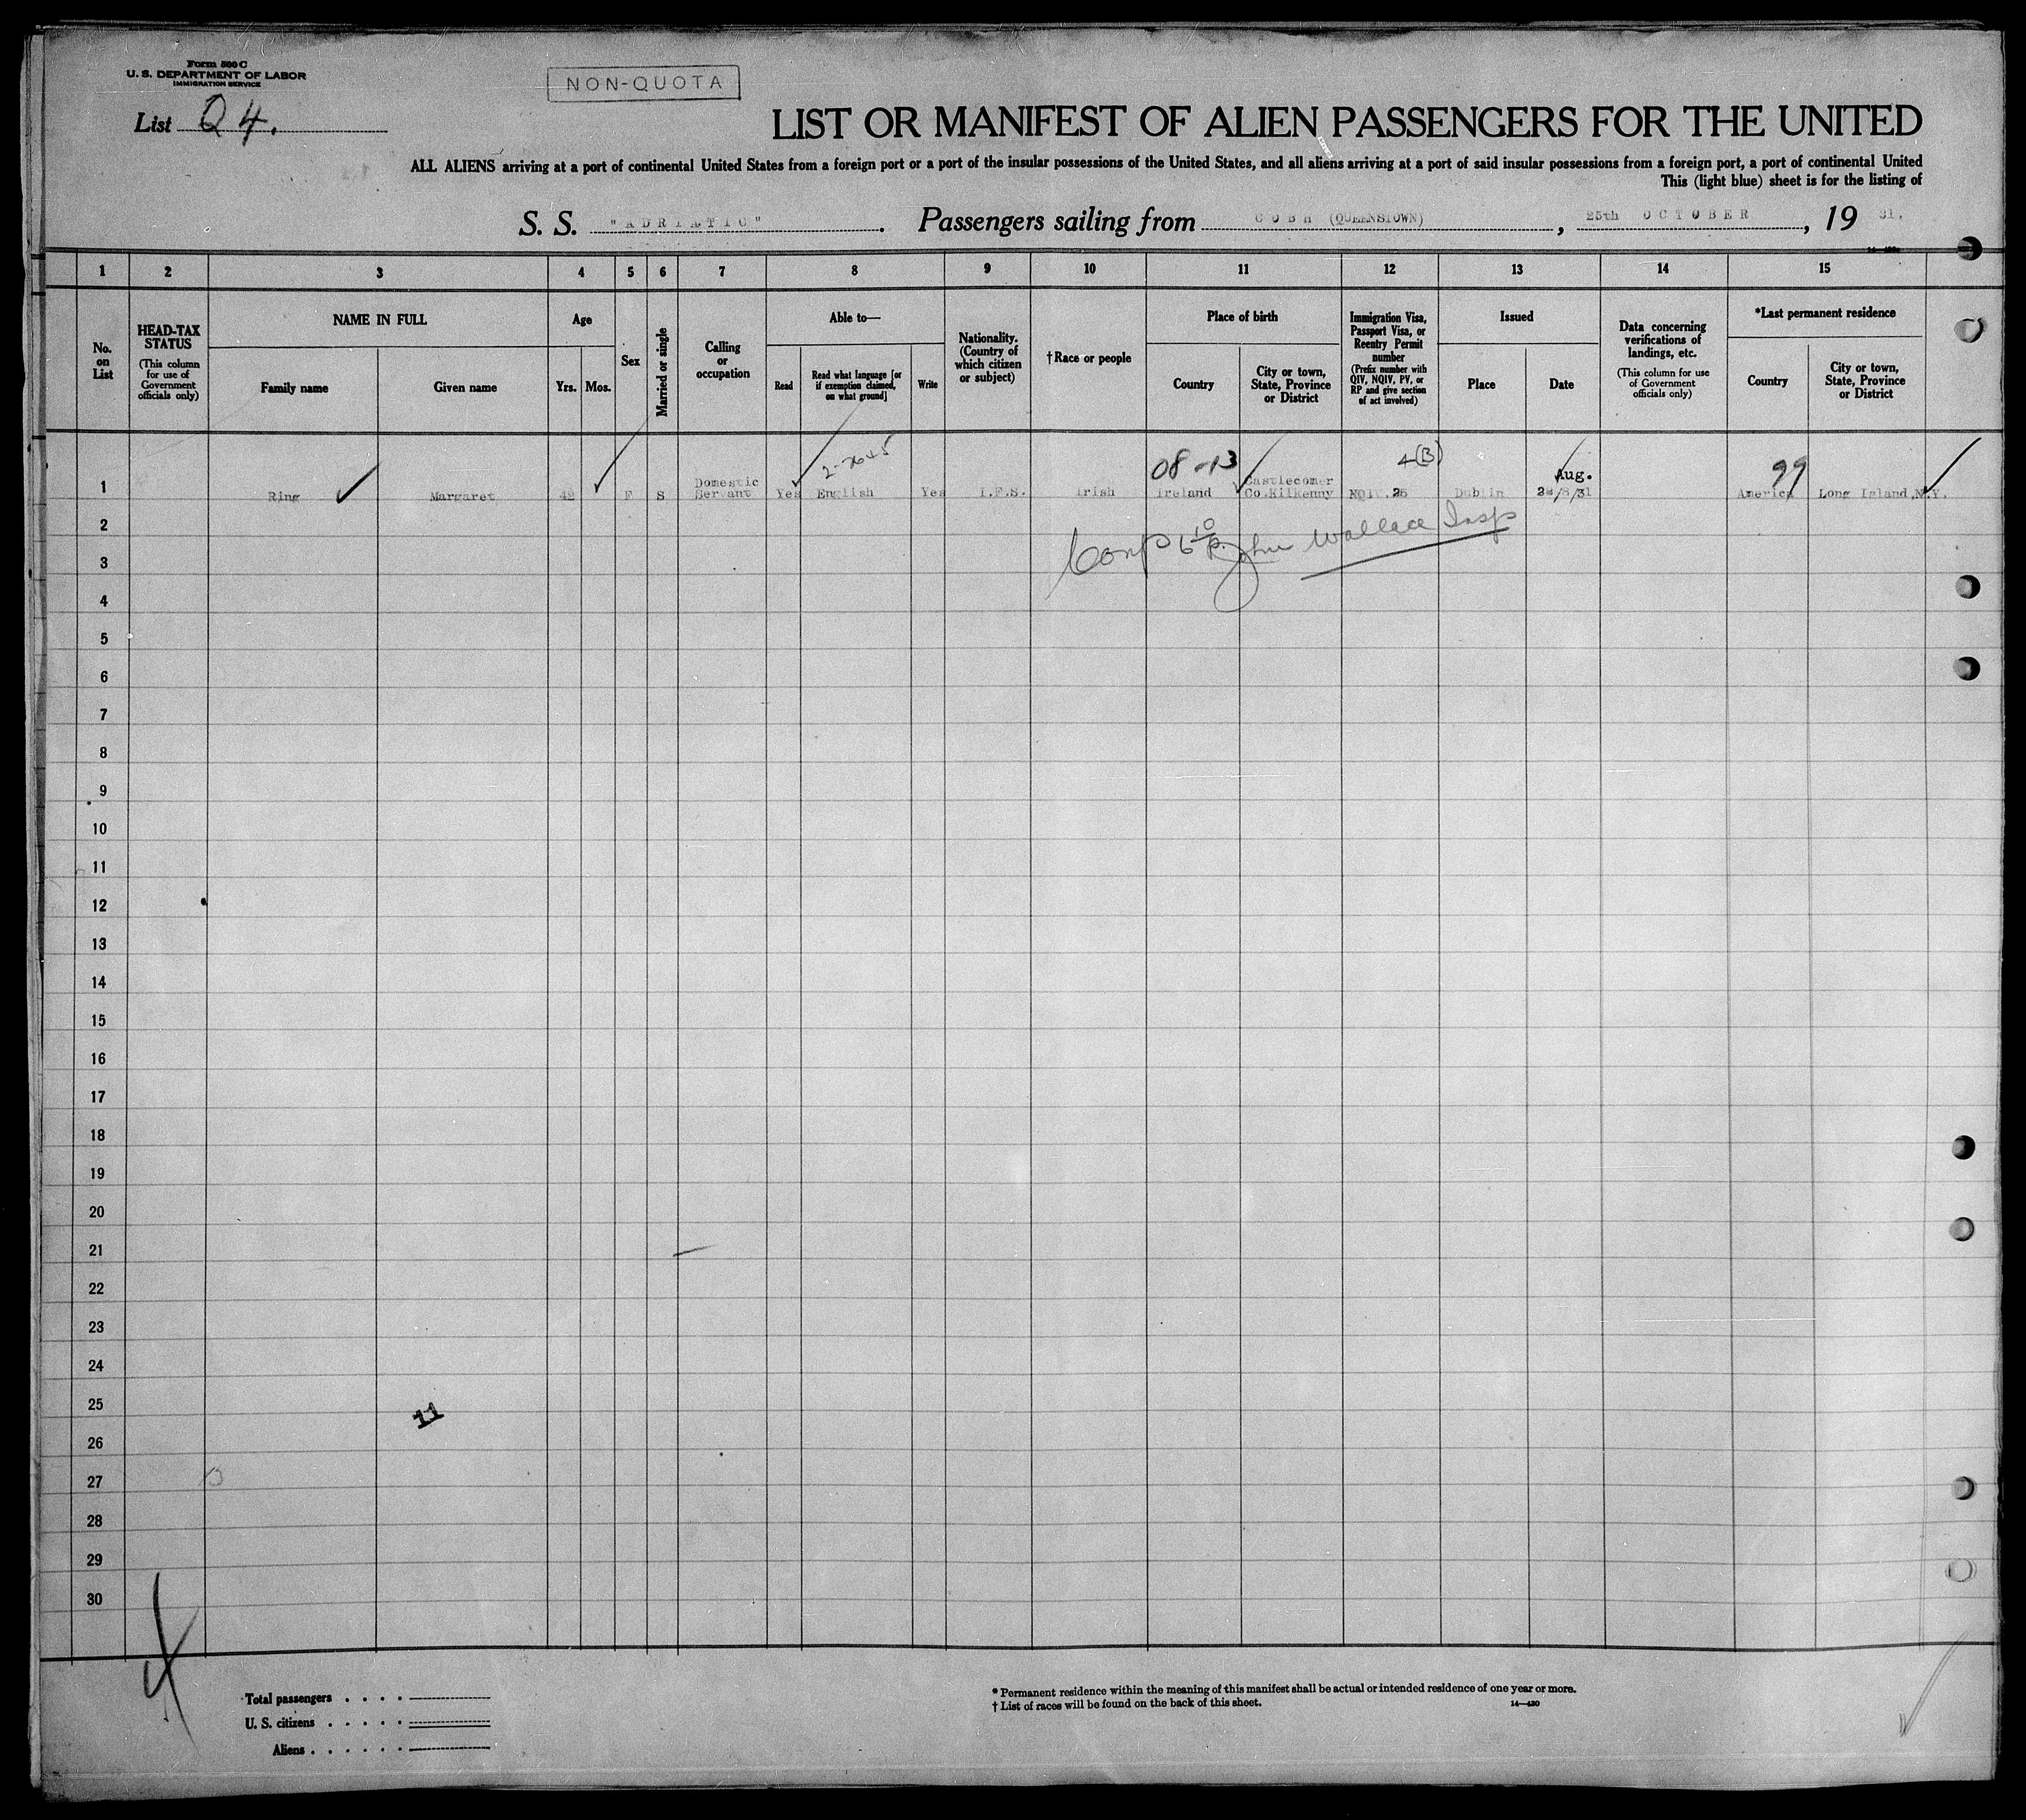 Form 500 C
U. S. DEPARTMENT OF LABOR
IMMIGRATION SERVICE
NON-QUOTA
List Q 4.
LIST OR MANIFEST OF ALIEN PASSENGERS FOR THE UNITED
ALL ALIENS arriving at a port of continental United States from a foreign port or a port of the insular possessions of the United States, and all aliens arriving at a port of said insular possessions from a foreign port, a port of continental United
This (light blue) sheet is for the listing of
S. S. "ADRIATIC". Passengers sailing from COBH (QUEENSTOWN), 25th OCTOBER, 19 31.
1 2 3 4 5 6 7 8 9 10 11 12 13 14 15
No. on List
HEAD-TAX STATUS
(This column for use of Government officials only)
NAME IN FULL
Family name
Given name
Age
Yrs. Mos.
Sex
Married or single
Calling or occupation
Able to—
Read
Read what language [or if exemption claimed, on what ground]
Write
Nationality. (Country of which citizen or subject)
†Race or people
Place of birth
Country
City or town, State, Province or District
Immigration Visa, Passport Visa, or Reentry Permit number
(Prefix number with QIV, NQIV, PV, or RP and give section of act involved)
Issued
Place
Date
Data concerning verifications of landings, etc.
(This column for use of Government officials only)
*Last permanent residence
Country
City or town, State, Province or District
08-13
4(B)
Aug.
99
1 Ring Margaret 42 F S Domestic Servant Yes English Yes I.F.S. Irish Ireland Castlecomer Co.Kilkenny NQIV.25 Dublin /8/31 America Long Island,N.Y.
2
John Wallace Insp
3
4
5
6
7
8
9
10
11
12
13
14
15
16
17
18
19
20
21
22
23
24
25
11
26
27
28
29
30
Total passengers . . . .
U. S. citizens . . . . .
Aliens . . . . . .
* Permanent residence within the meaning of this manifest shall be actual or intended residence of one year or more.
† List of races will be found on the back of this sheet.
14—430